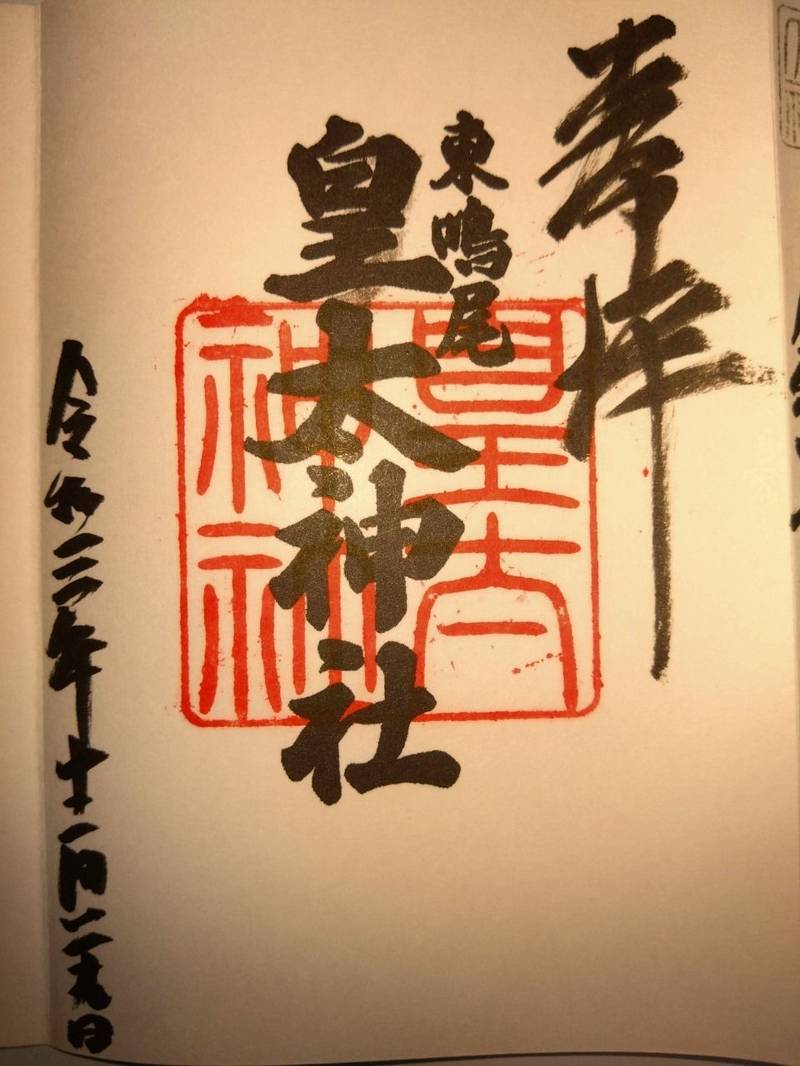 奉拝
東鳴尾
皇太神社
皇太
神社
令和三年十一月二十九日